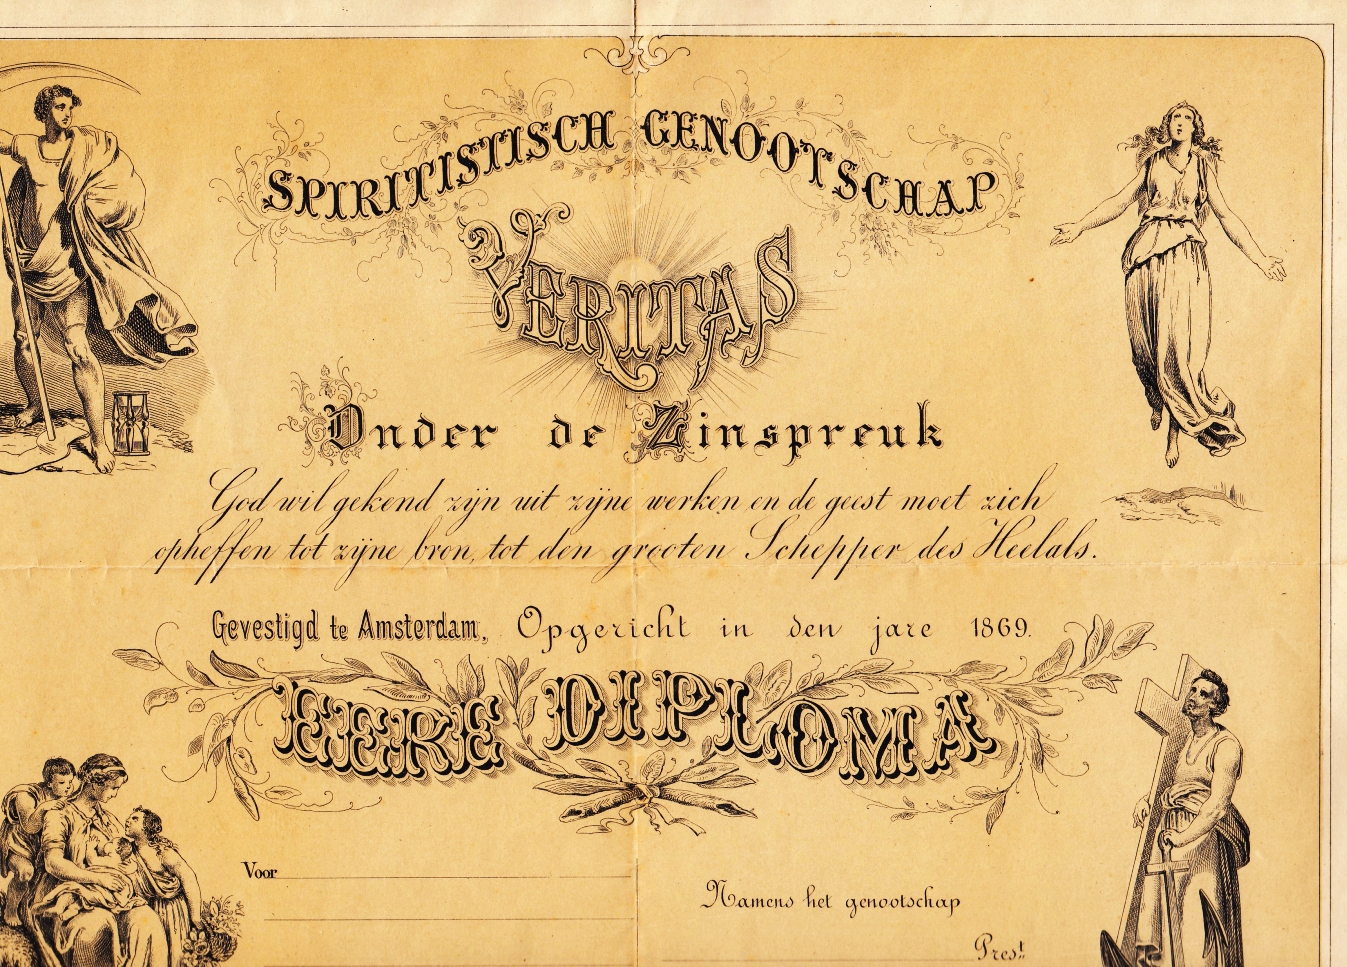 SPIRITISTISCH GENOOTSCHAP
VERITAS
Onder de Zinspreuk
God wil gekend zijn uit zijne werken en de geest moet zich
opheffen tot zijne bron, tot den grooten Schepper des Heelals.
Gevestigd te Amsterdam, Opgericht in den jare 1869.
EERE DIPLOMA
Voor
Namens het genootschap
Prest.